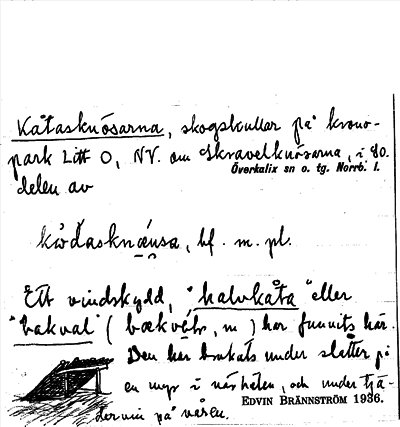 Kåtasknösarna, skogskullar på krono-
park Litt O, NV. om Skravelknösarna, i SO.
Överkalix sn o. tg. Norrb. l.
delen av
bf. m. pl.
Ett vindskydd, "halvkåta" eller
"bakval" ( m) har funnits här.
Den har brukats under slåtter på
en myr i närheten, och under tjä-
EDVIN BRÄNNSTRÖM 1936.
dervin på våren.